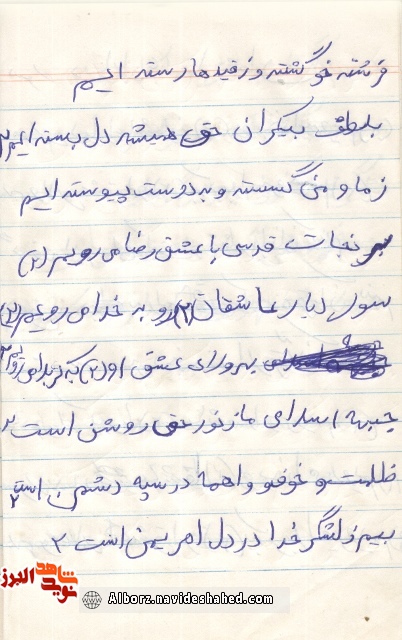 فرشته خو گشته و ز قیدها رسته ایم
بلطف بیکران حق همیشه دل بسته ایم ۲
ز ما و من گسسته و به دوست پیوسته ایم
بهر نجات قدس با عشق رضا می رویم (۲)
سوی دیار عاشقان (۲) رو به خدا می رویم (۲)
بهر ولای عشق او (۲) به کربلا می رویم ۲
جبهه اسلامی ما ز نور حق روشن است ۲
ظلمت و خوف و واهمه در سپه دشمن است ۲
بیم ز لشگر خدا در دل اهریمن است ۲
شاهد
نوید
البرز
Alborz.navideshahed.com